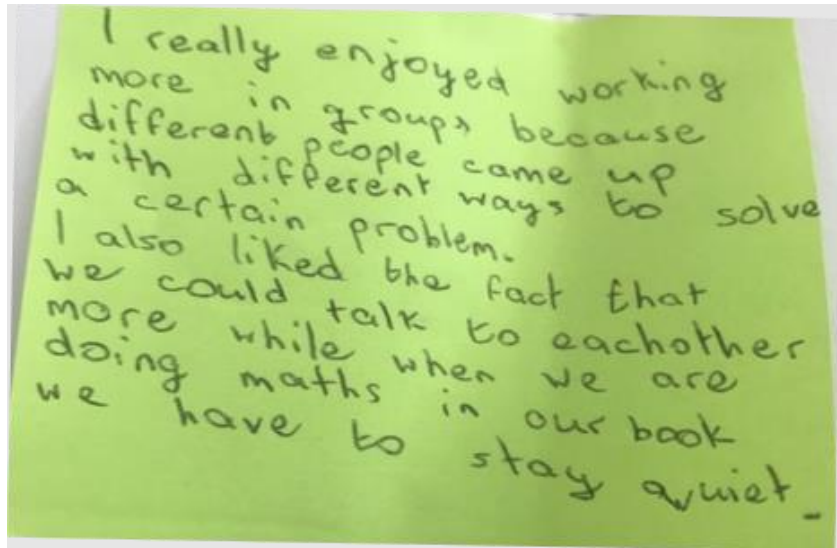 I really enjoyed working
more in groups because
different people came up
with different ways to solve
a certain problem.
I also liked the fact that
we could talk to eachother
more while when we are
doing maths in our book
we have to stay quiet.